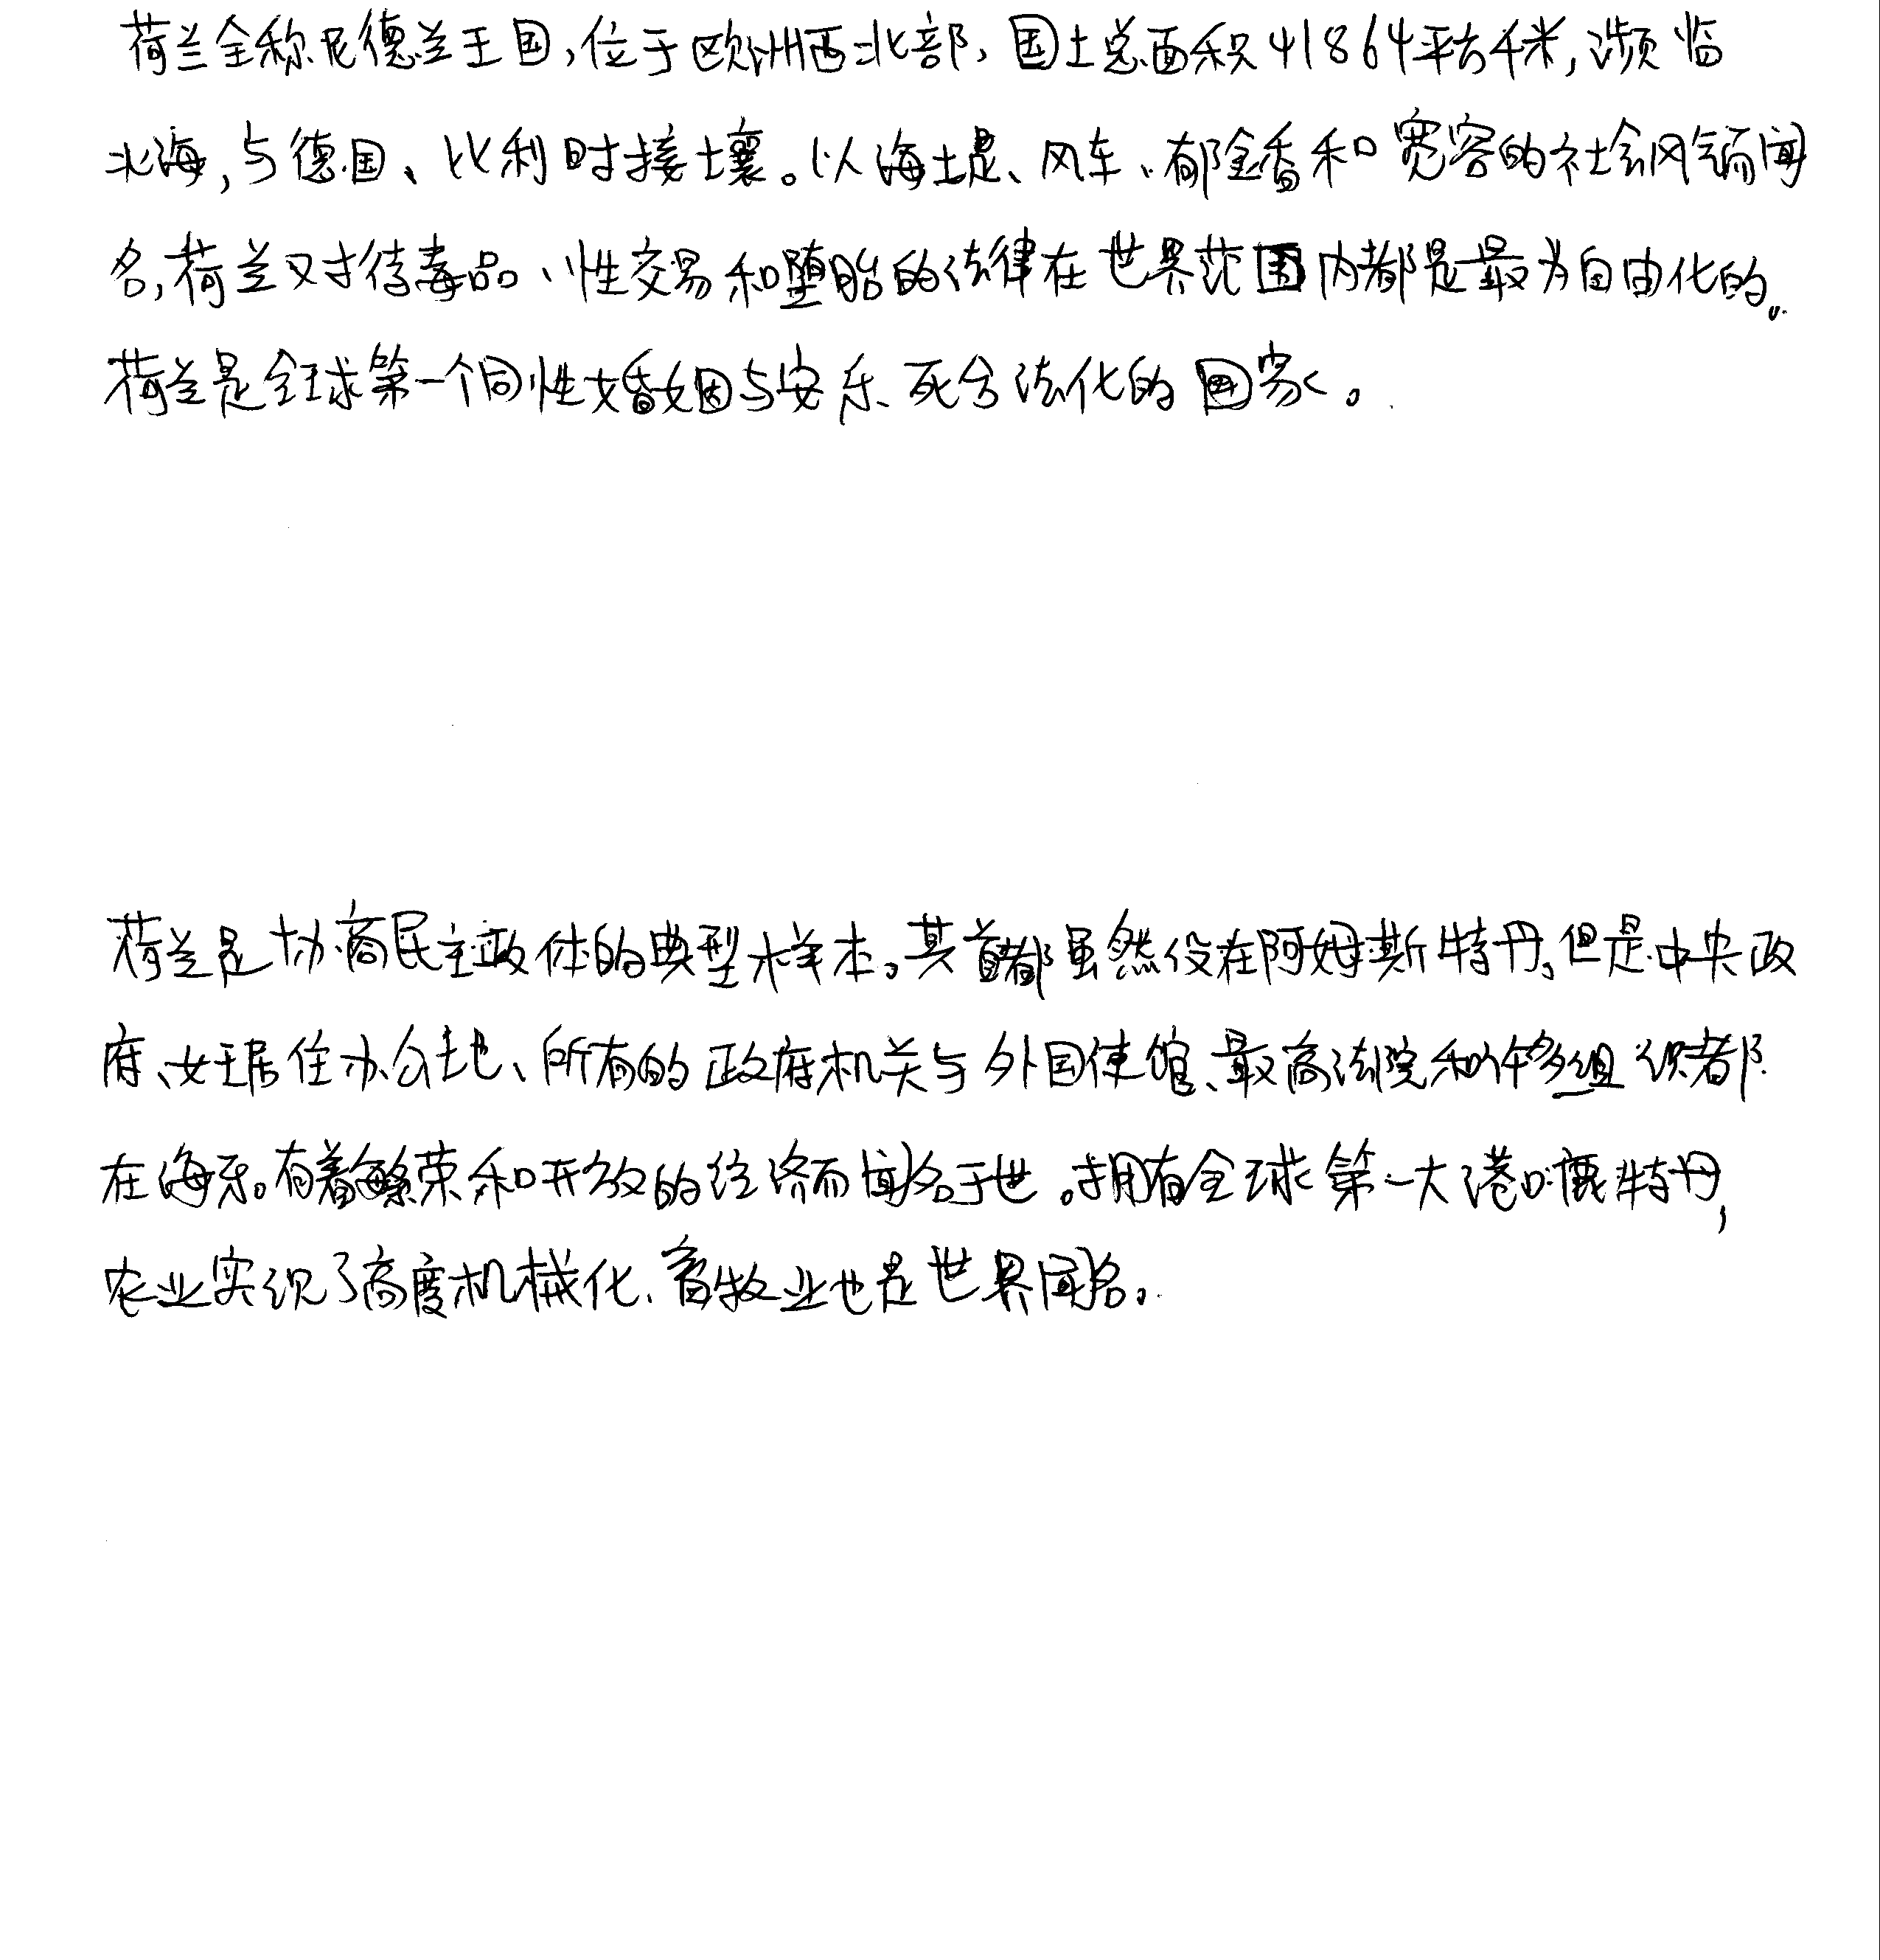 荷兰全称尼德兰王国,位于欧洲西北部,国土总面积41864平方千米,濒临
北海,与德国、比利时接壤。以海堤、风车、郁金香和宽容的社会风气而闻
名,荷兰对待毒品、性交易和堕胎的法律在世界范围内都是最为自由化的。
荷兰是全球第一个同性婚姻与安乐死合法化的国家。
荷兰是协商民主政体的典型样本。其首都虽然设在阿姆斯特丹,但是中央政
府、女王居住办公地、所有的政府机关与外国使馆、最高法院和许多组织都
在海牙。有着繁荣和开放的经济而闻名于世。拥有全球第一大港口鹿特丹,
农业实现了高度机械化、畜牧业也是世界闻名。